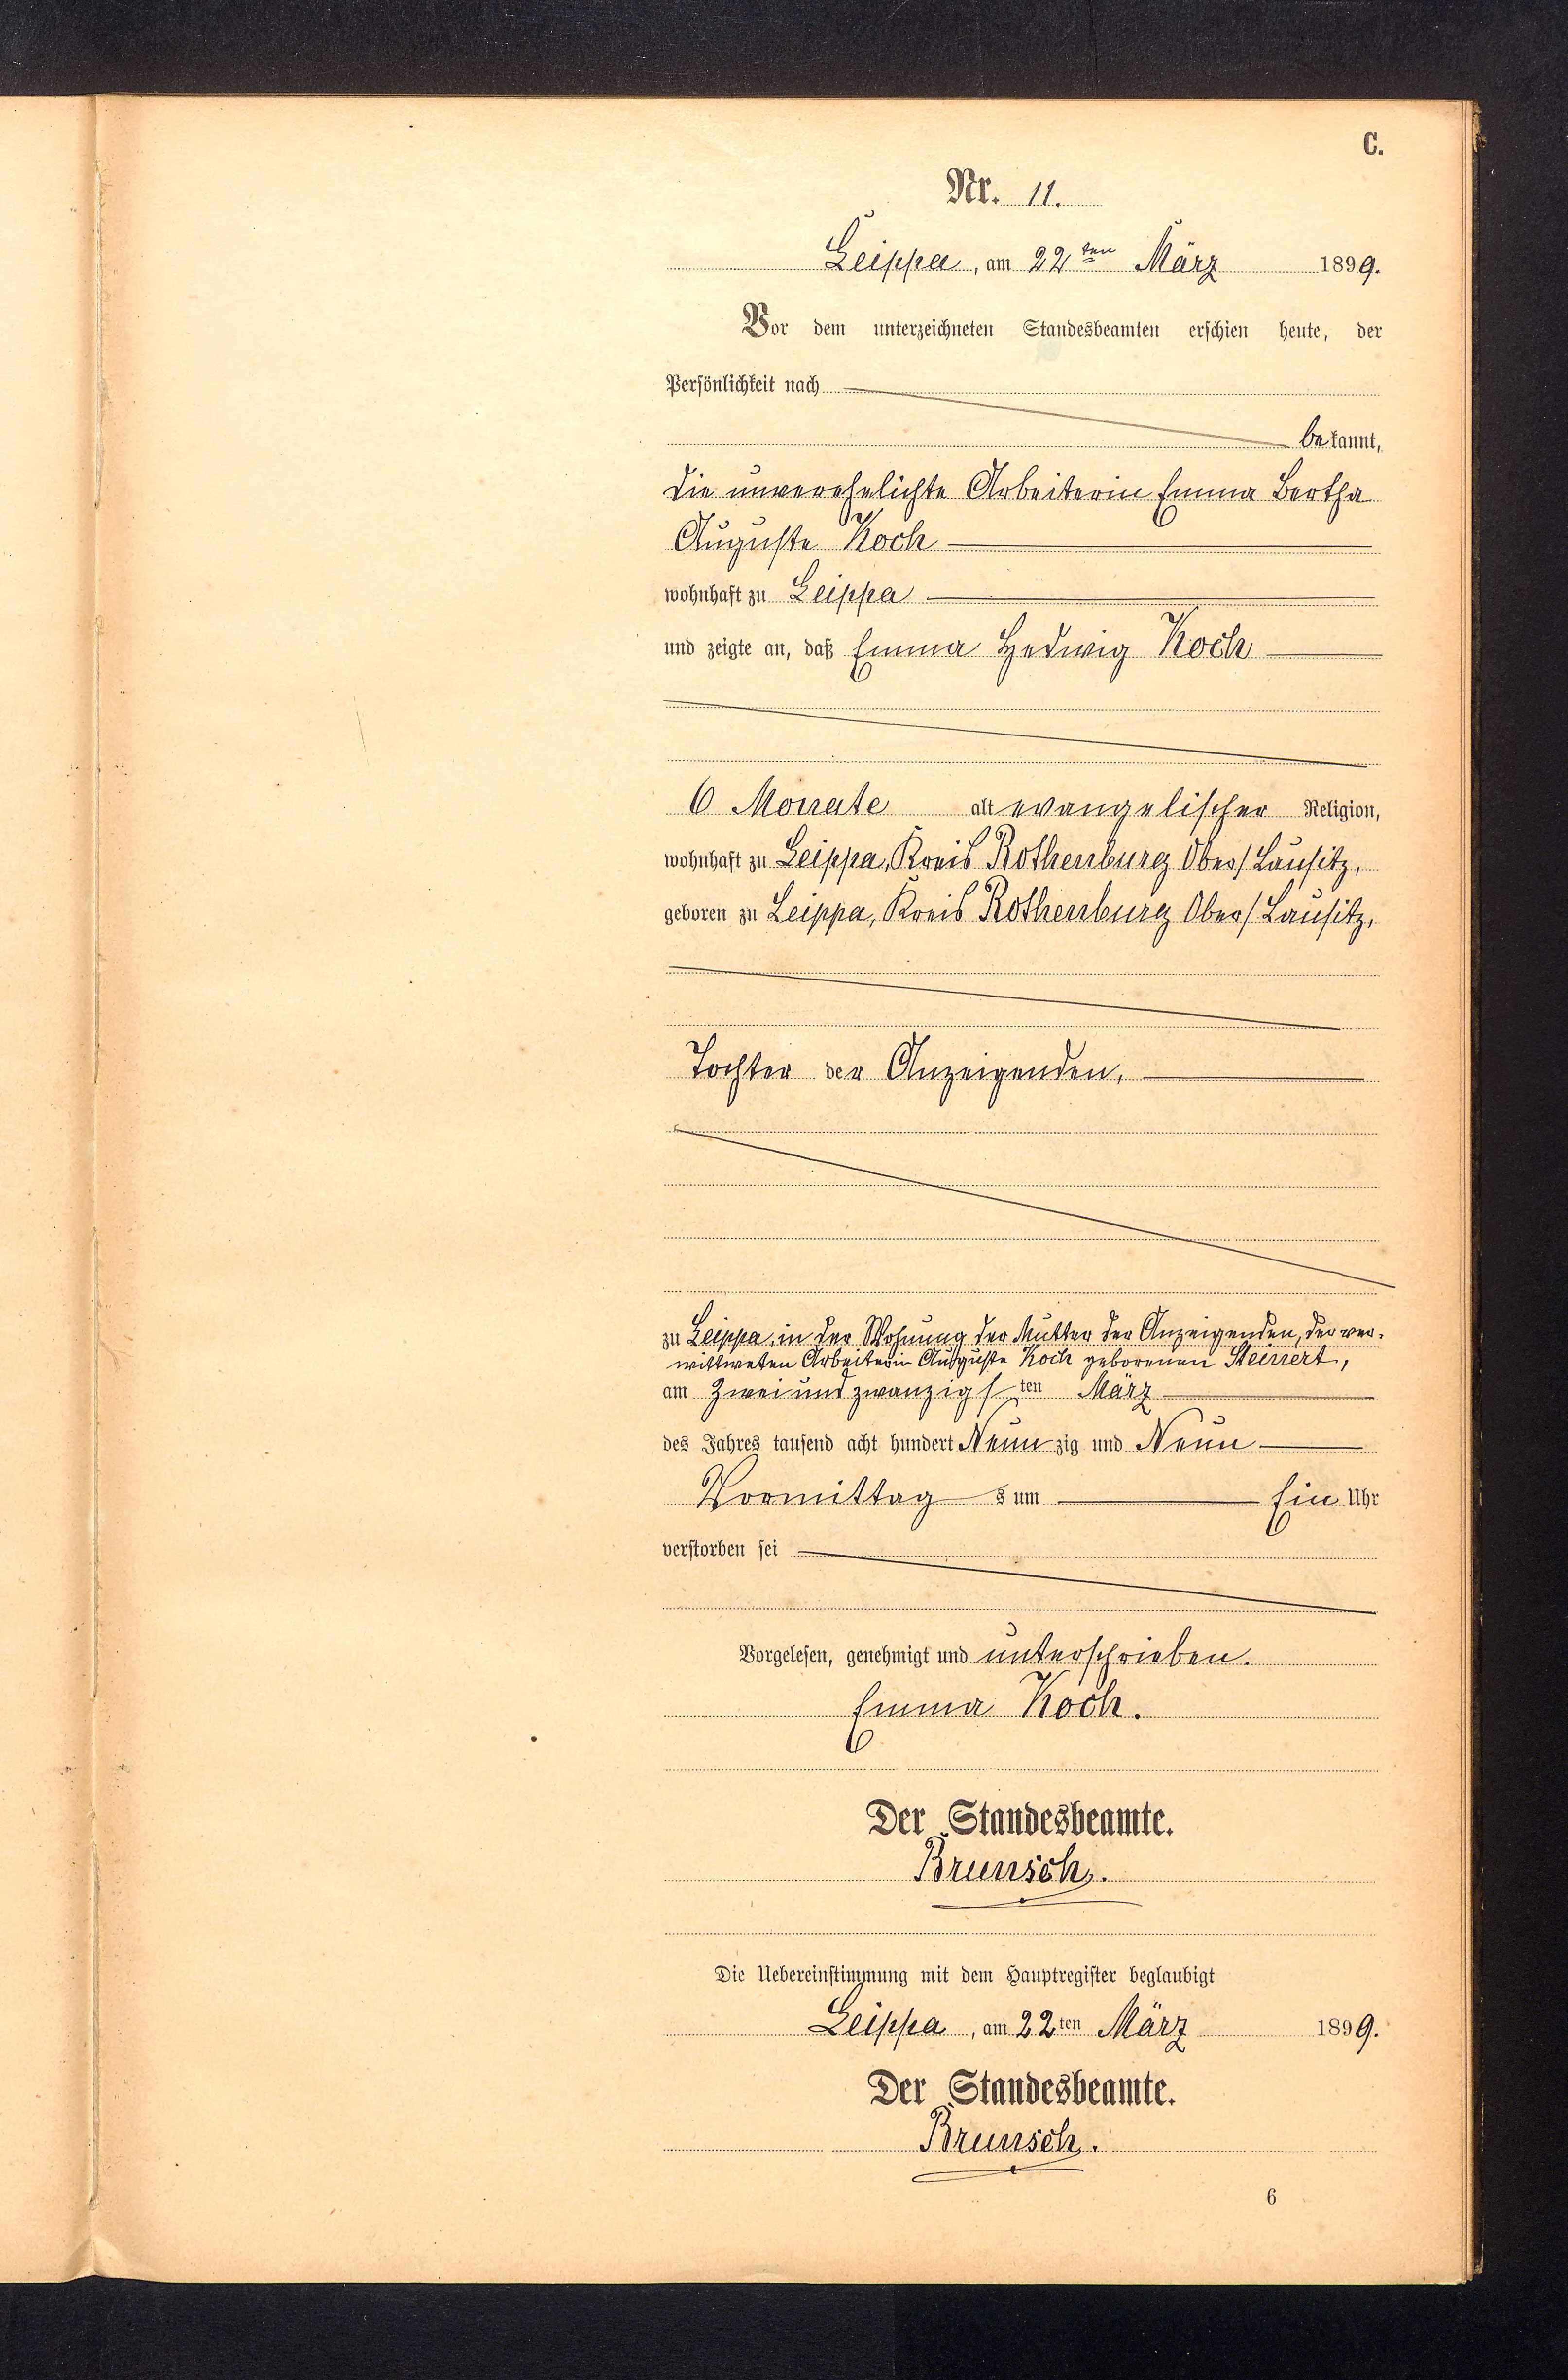 C.
Nr. 11.
Leippa, am 22ten März 1899.
Vor dem unterzeichneten Standesbeamten erschien heute, der
Persönlichkeit nach
bekannt,
die unverehelichte Arbeiterin Emma Bertha
Auguste Koch
wohnhaft zu Leippa
und zeigte an, daß Emma Hedwig Koch
6 Monate alt evangelischer Religion,
wohnhaft zu Leippa, Kreis Rothenburg Ober/Lausitz,
geboren zu Leippa, Kreis Rothenburg Ober/Lausitz,
Tochter der Anzeigenden,
zu Leippa, in der Wohnung der Mutter der Anzeigenden, der ver-
wittweten Arbeiterin Auguste Koch geborenen Steinert,
am Zwei und zwanzigsten März
des Jahres tausend acht hundert Neunzig und Neun
Vormittags um Ein Uhr
verstorben sei
Vorgelesen, genehmigt und unterschrieben.
Emma Koch.
Der Standesbeamte.
Brunsch.
Die Uebereinstimmung mit dem Hauptregister beglaubigt
Leippa, am 22ten März 1899.
Der Standesbeamte.
Brunsch.
6